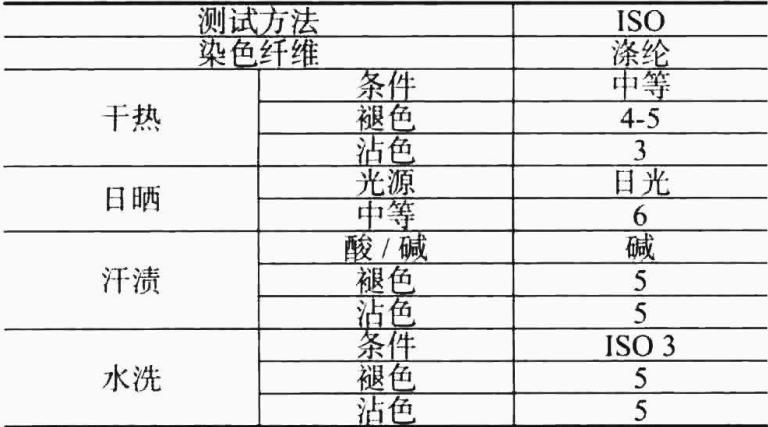 测试方法 ISO
染色纤维 涤纶
干热 条件 中等
褪色 4-5
沾色 3
日晒 光源 日光
中等 6
汗渍 酸 / 碱 碱
褪色 5
沾色 5
水洗 条件 ISO 3
褪色 5
沾色 5